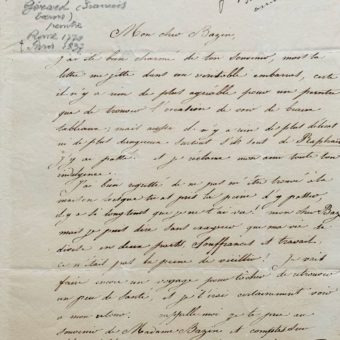 Gérard (François
baron) peintre
Rome 1770
Paris 1837
Mon cher Bazin,
J'ai été bien charmé de ton souvenir, mais ta
lettre me jette dans un véritable embarras, certes
il n'y a rien de plus agréable pour un peintre
que de trouver l'occasion de voir de beaux
tableaux; mais aussi il n'y a rien de plus délicat
ni de plus dangereux surtout s'ils sont de Raphaël
j'y ai et je réclame mon ami toute ton
indulgence.
J'ai bien regretté de ne pas m'être trouvé à la
maison lorsque tu as pris la peine d'y passer,
il y a si longtems que je ne t'ai vu! mon cher Baz
mais je puis dire sans exagérer que ma vie se
divise en deux parts, Souffrances et travail.
ce n'était pas la peine de vieillir! Je vais
faire encore un voyage pour tâcher de retrouver
un peu de santé, et je t'irai certainement voir
à mon retour. rappelle moi je te prie au
souvenir de Madame Bazin et